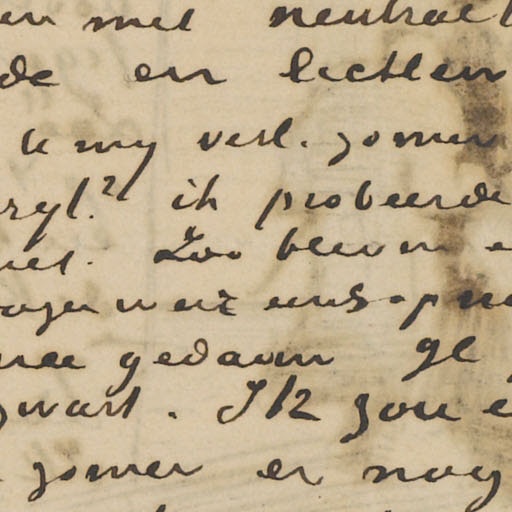 en met neutrael
de en lichten
te my verl. zomer
zyl? ik probeerde
net. Zoo bleven e
nee gedaan ge
zwart. Ik zou e
zomer er nog